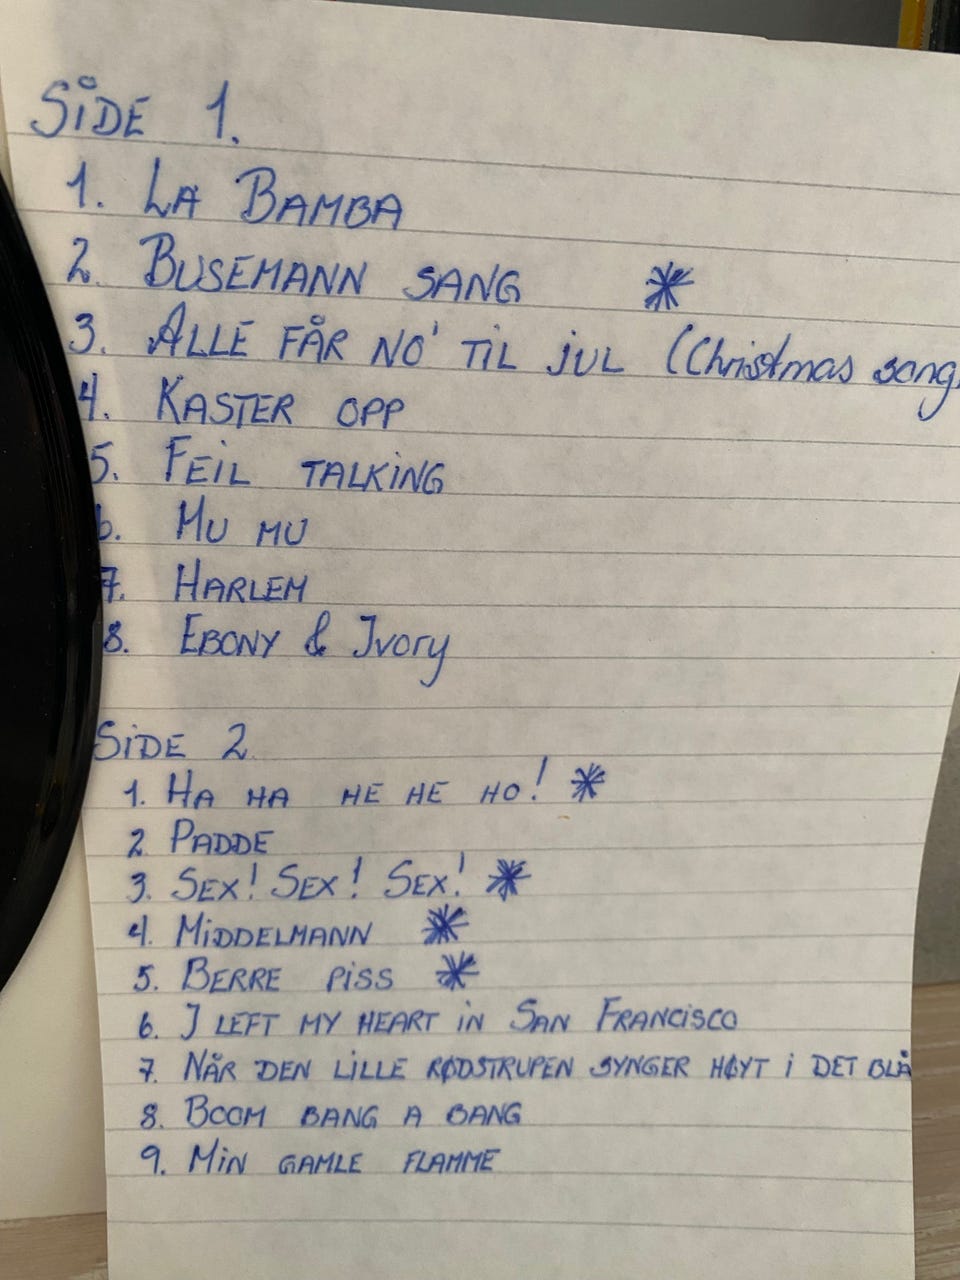 SIDE 1.
1. LA BAMBA
2. BUSEMANN SANG *
3. ALLE FÅR NO' TIL JUL (Christmas song
4. KASTER OPP
5. FEIL TALKING
6. MU MU
7. HARLEM
8. EBONY & Ivory
SIDE 2
1. HA HA HE HE HO! *
2. PADDE
3. SEX! SEX! SEX! *
4. MIDDELMANN *
5. BERRE PISS *
6. I LEFT MY HEART IN SAN FRANCISCO
7. NÅR DEN LILLE RØDSTRUPEN SYNGER HØYT I DET BLÅ
8. BOOM BANG A BANG
9. MIN GAMLE FLAMME